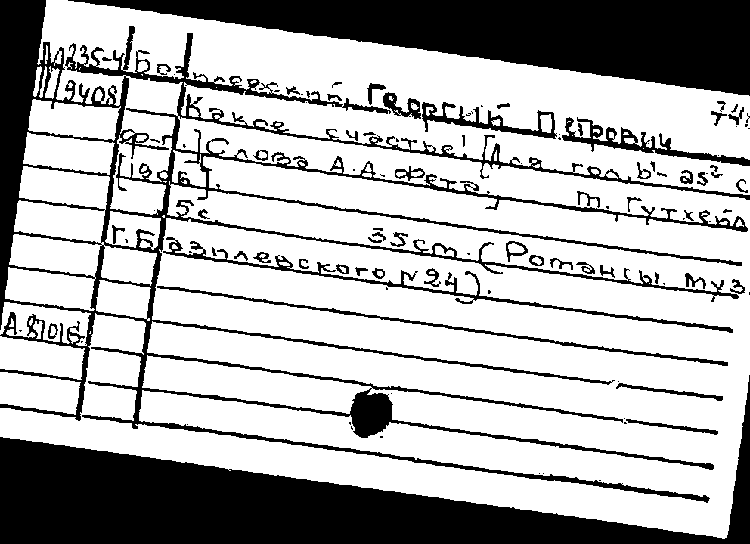 М235-4 Базилевский, Георгий Петрович 748
9408 Какое счастье! [Для гол. b¹- as² с
ф-п.] Слова А.А. Фета. м., Гутхейл
[1906].
5с. 35cm. (Романсы муз.
Г. Базилевского, №24).
А.87016